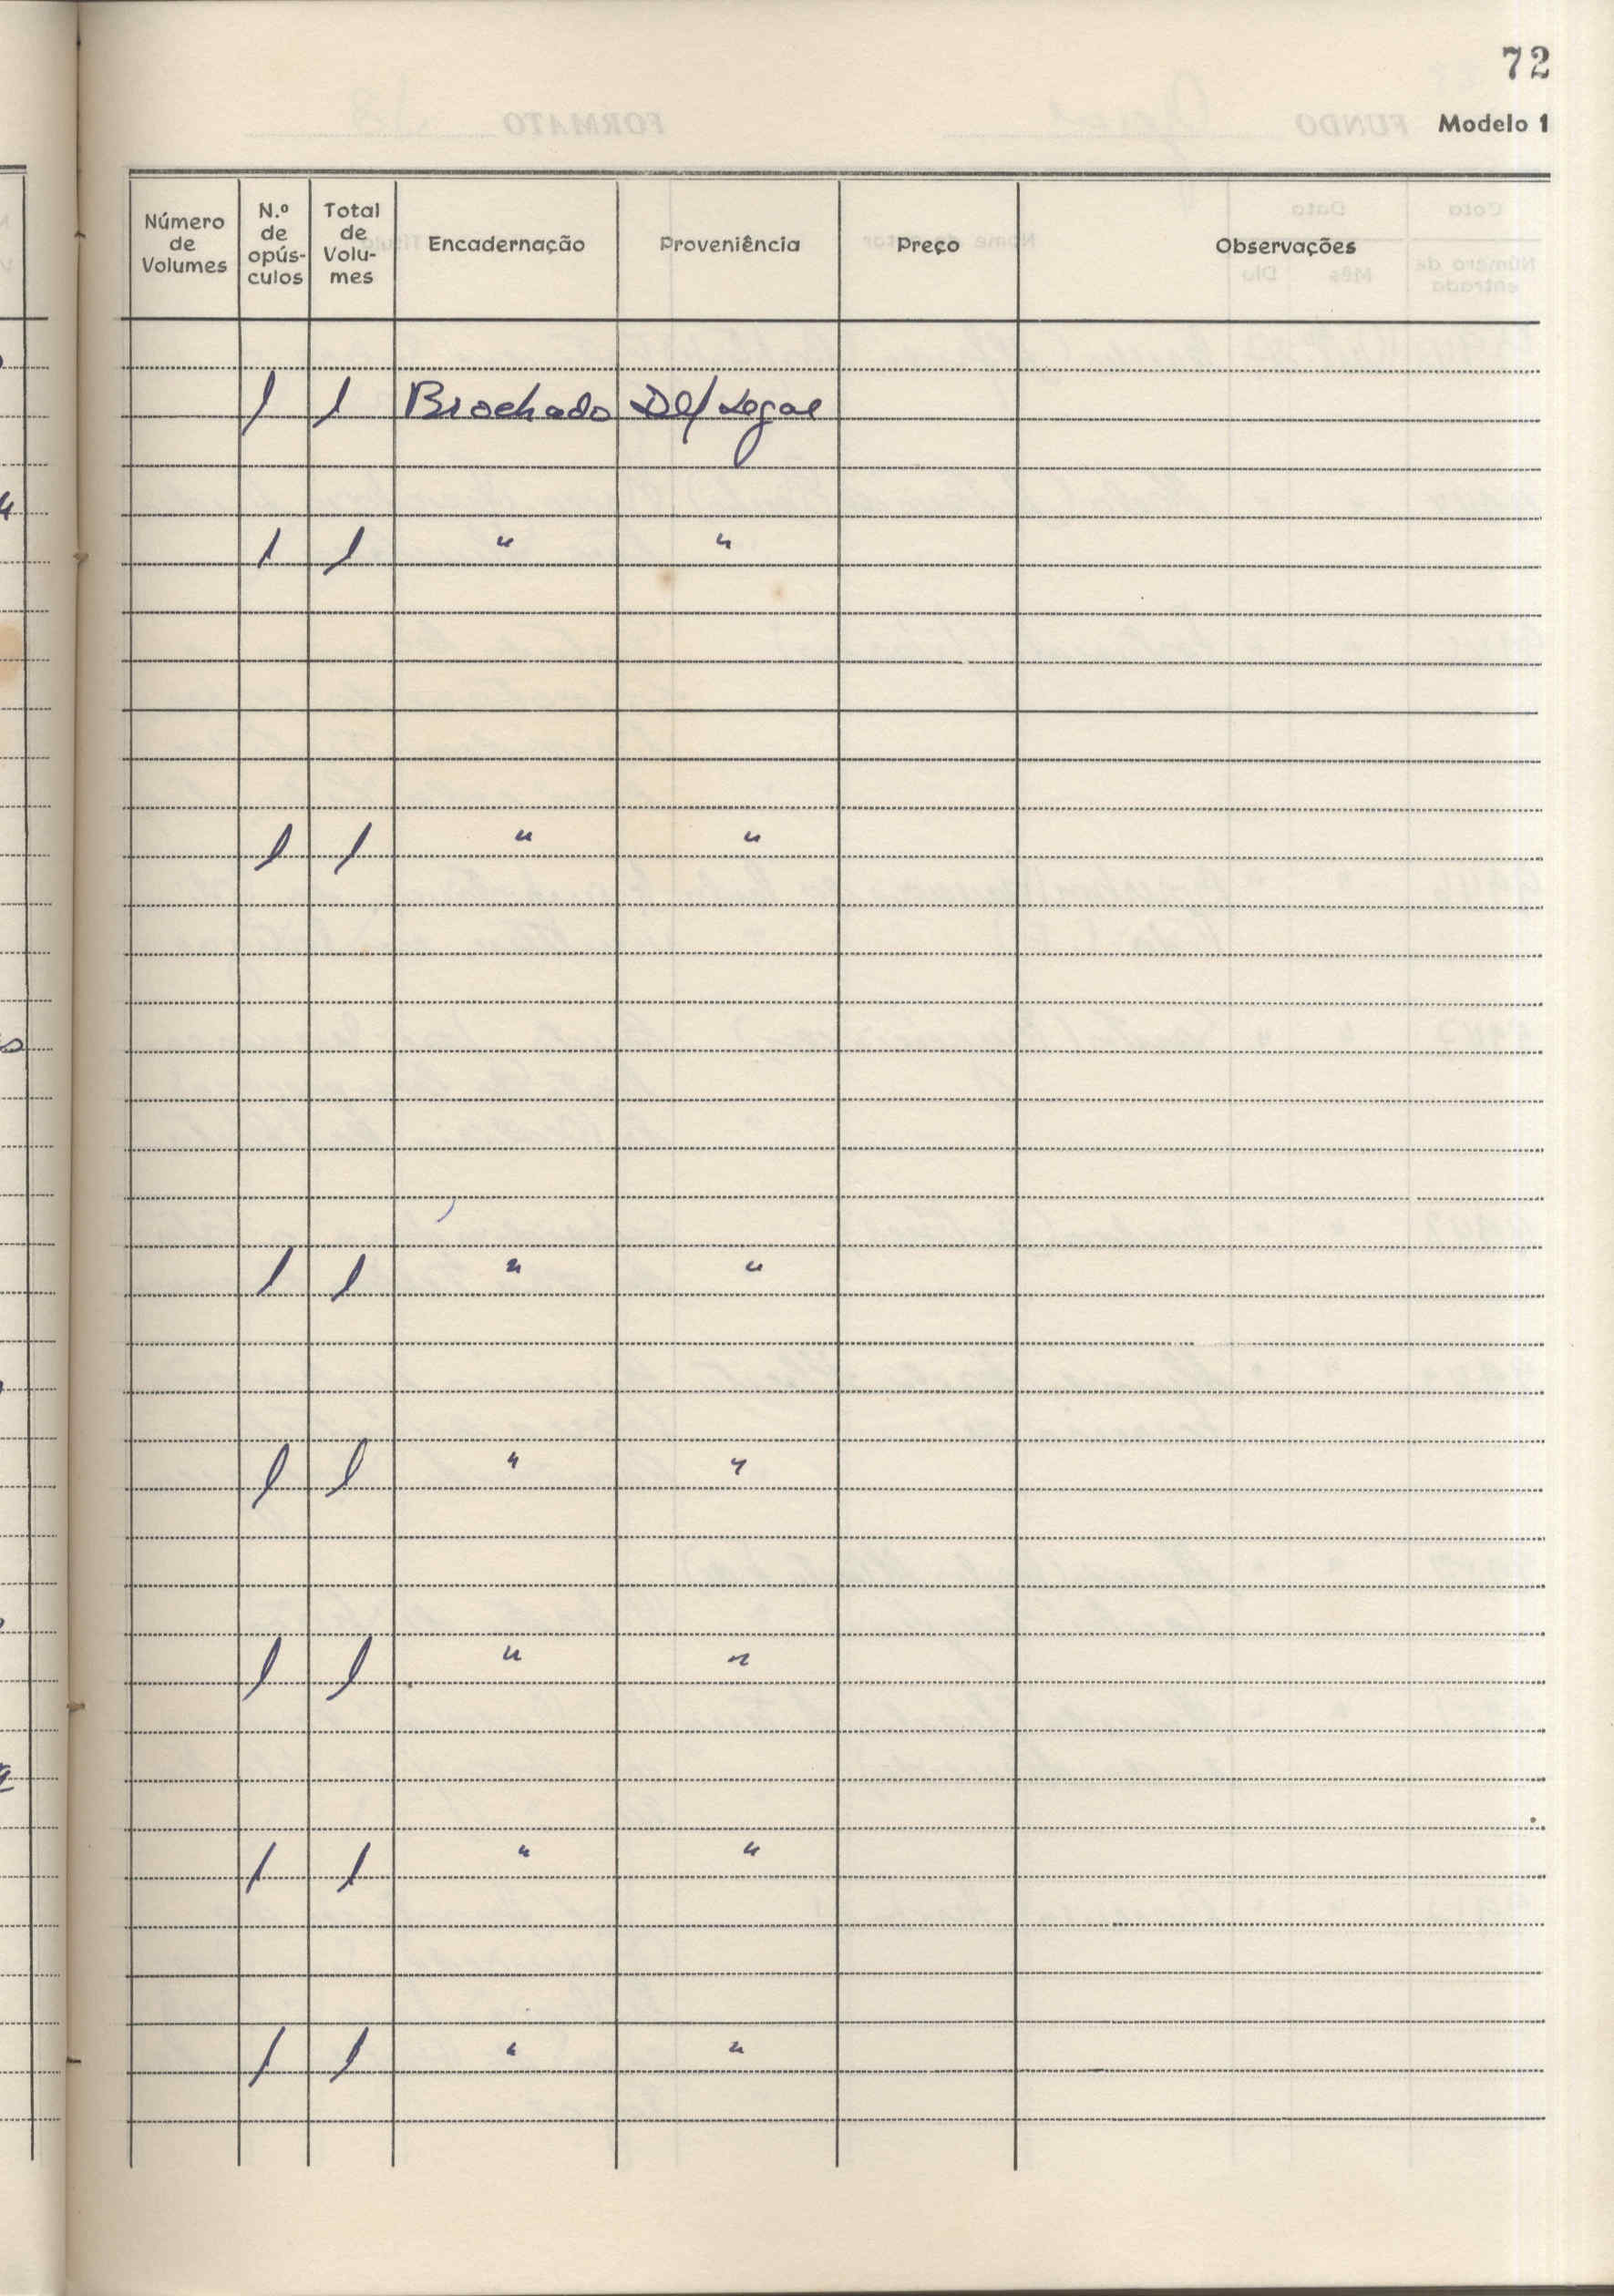 72
Modelo 1
Número de Volumes N.º de opús-culos Total de Volu-mes Encadernação Proveniência Preço Observações
1 1 Brochado D/Legal
1 1 " "
1 1 " "
1 1 " "
1 1 " "
1 1 " "
1 1 " "
1 1 " "